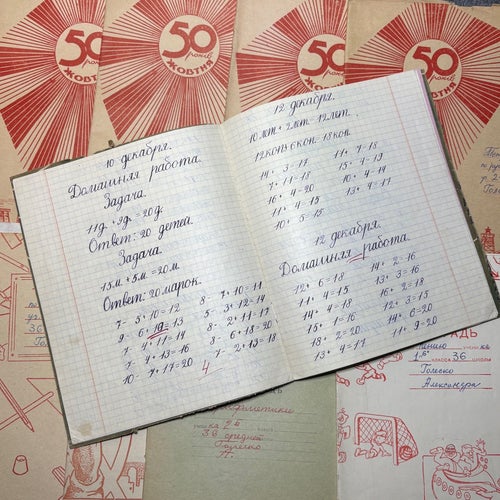 50
років
ЖОВТНЯ
50
років
ЖОВТНЯ
50
років
ЖОВТНЯ
50
років
ЖОВТНЯ
10 декабря.
Домашняя работа.
Задача.
11д. + 9д. = 20д.
Ответ: 20 детей.
Задача
15м. + 5м. = 20м.
Ответ: 20 марок.
7 - 5 + 10 = 12
9 - 6 + 10 = 13
7 - 4 + 11 = 14
7 - 4 + 13 = 16
10 - 7 + 17 = 20
8 - 7 + 10 = 11
5 - 3 + 12 = 14
8 - 2 + 11 = 17
8 - 6 + 18 = 20
7 - 2 + 13 = 18
4
12 декабря.
10 лет + 2 лет = 12 лет.
12 коп + 6 коп. = 18 коп.
14 + 3 = 17
7 + 11 = 18
16 + 4 = 20
11 + 4 = 15
10 + 5 = 15
11 + 7 = 18
15 + 4 = 19
10 + 4 = 14
13 + 4 = 17
12 декабря.
Домашняя работа
12 + 6 = 18
11 + 4 = 15
14 + 4 = 18
15 + 1 = 16
18 + 2 = 20
13 + 4 = 17
14 + 2 = 16
13 + 3 = 16
16 + 2 = 18
12 + 3 = 15
14 + 6 = 20
11 + 9 = 20
36
2б
36 средней
Голеско
1б класса 36 школы
Голеско
Александра